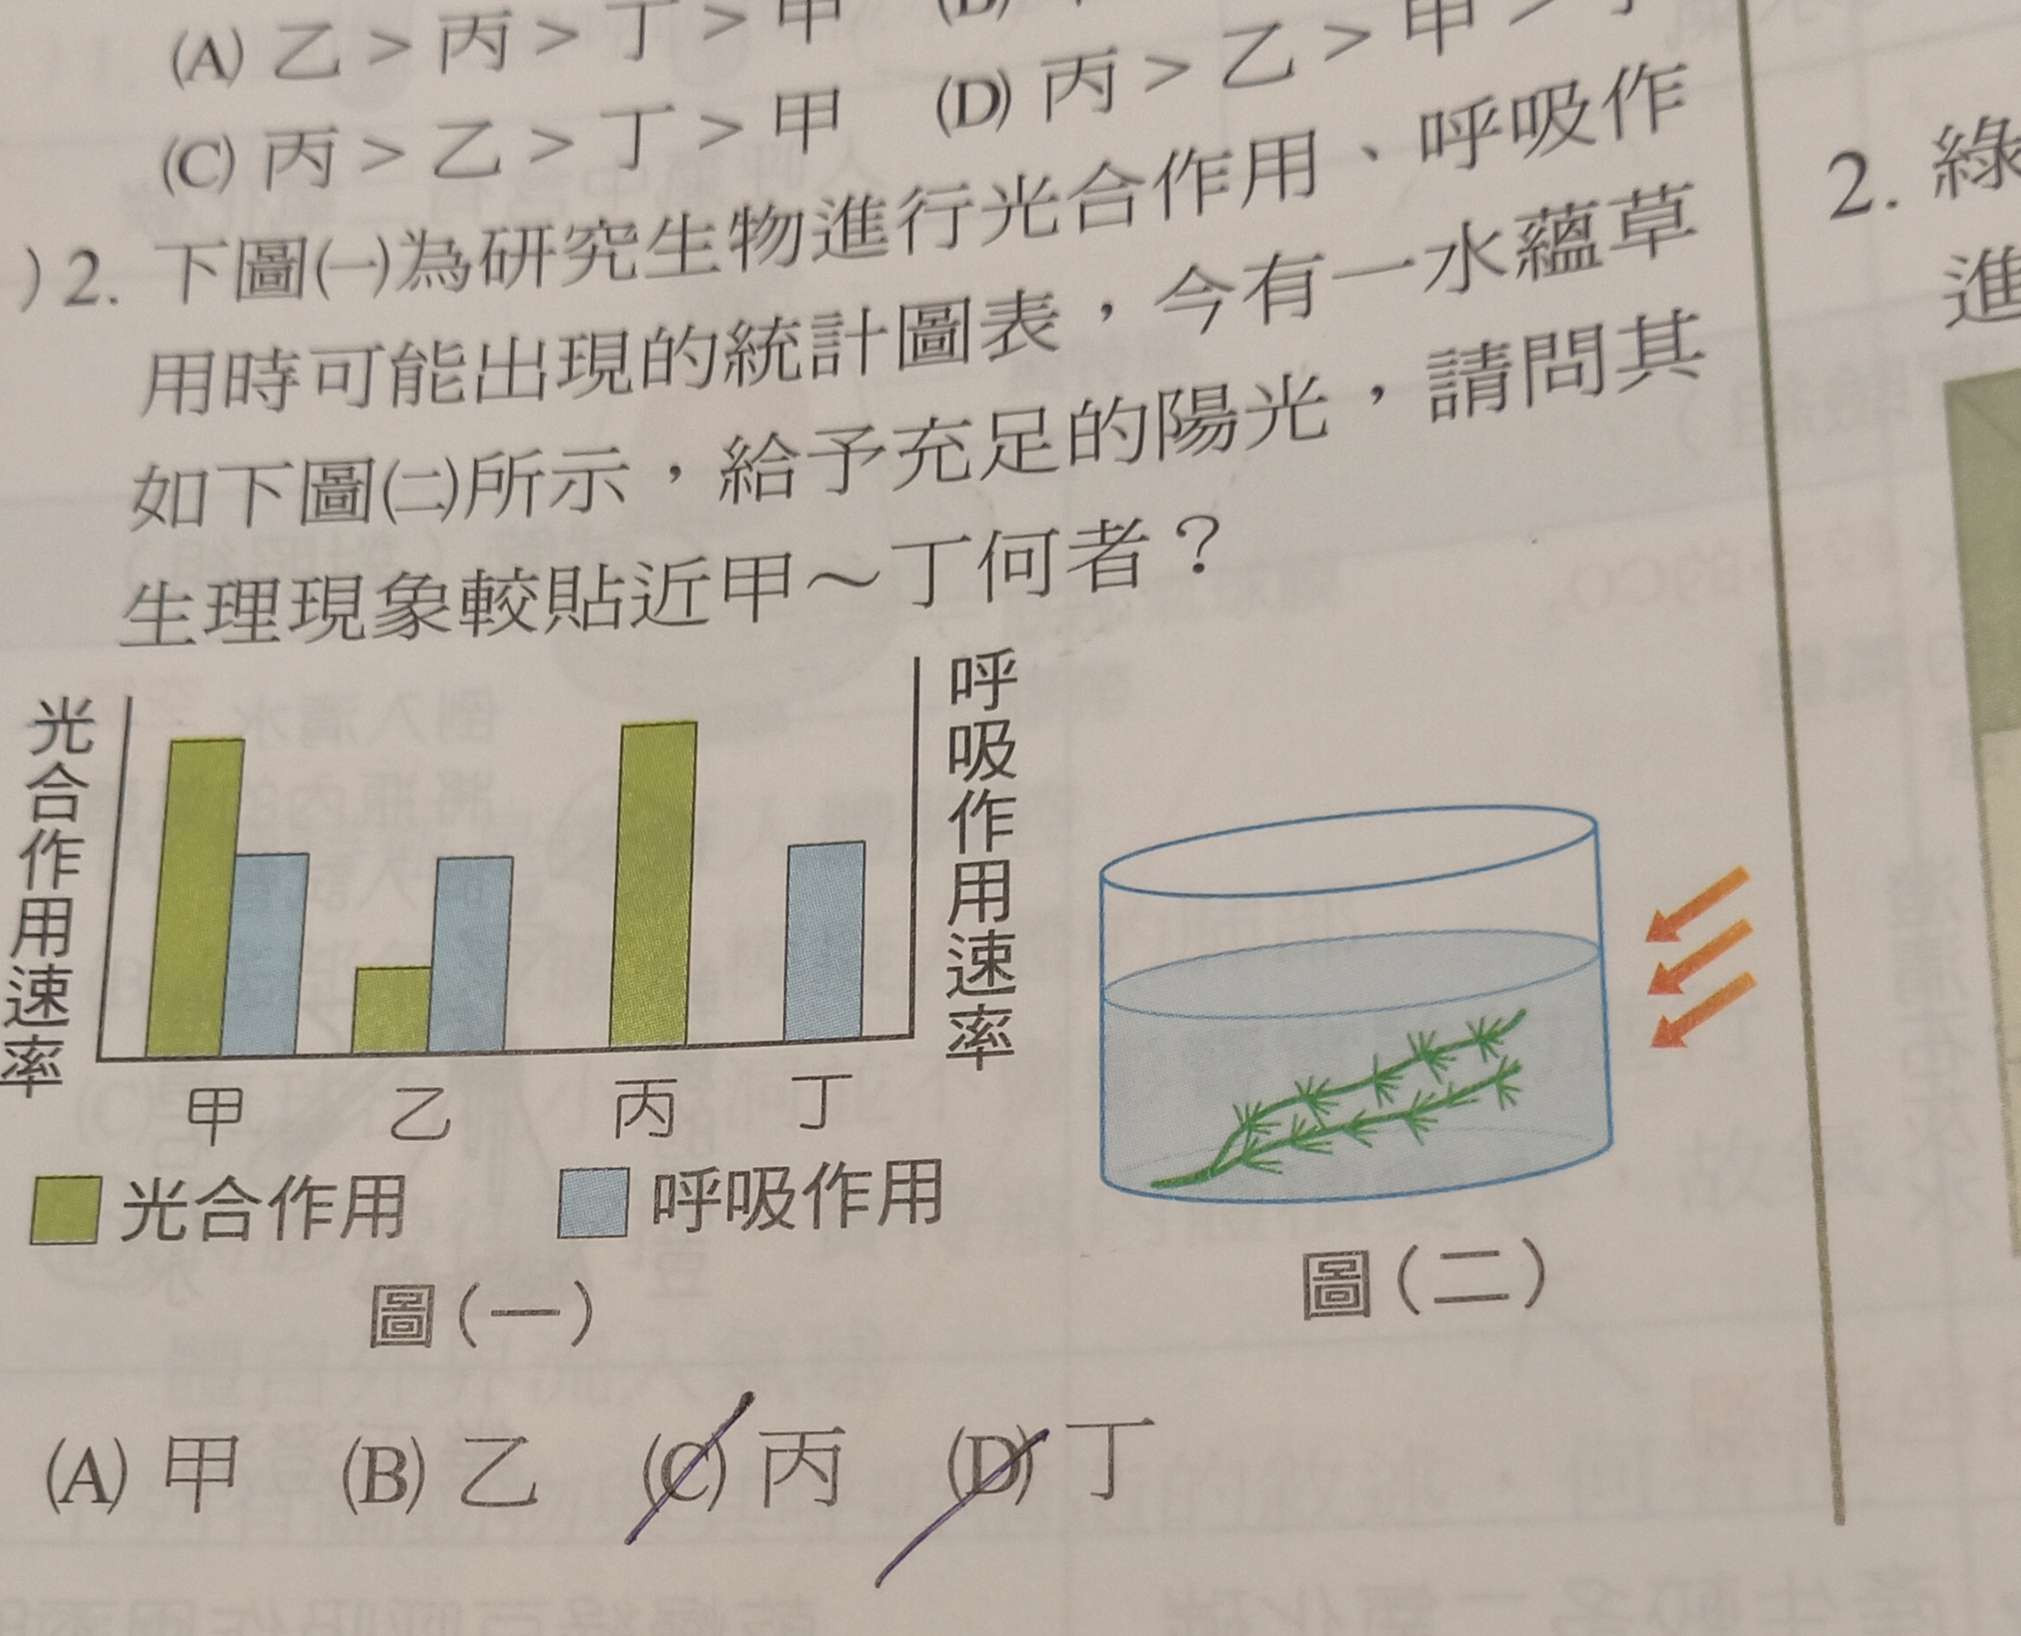 (A) 乙 > 丙 > 丁 > 甲 (B)
(C) 丙 > 乙 > 丁 > 甲 (D) 丙 > 乙 > 甲 >
) 2. 下圖㈠為研究生物進行光合作用、呼吸作
用時可能出現的統計圖表，今有一水蘊草
如下圖㈡所示，給予充足的陽光，請問其
生理現象較貼近甲～丁何者？
光合作用速率
呼吸作用速率
甲 乙 丙 丁
光合作用 呼吸作用
圖(一)
圖(二)
(A) 甲 (B) 乙 (C) 丙 (D) 丁
2. 綠
進